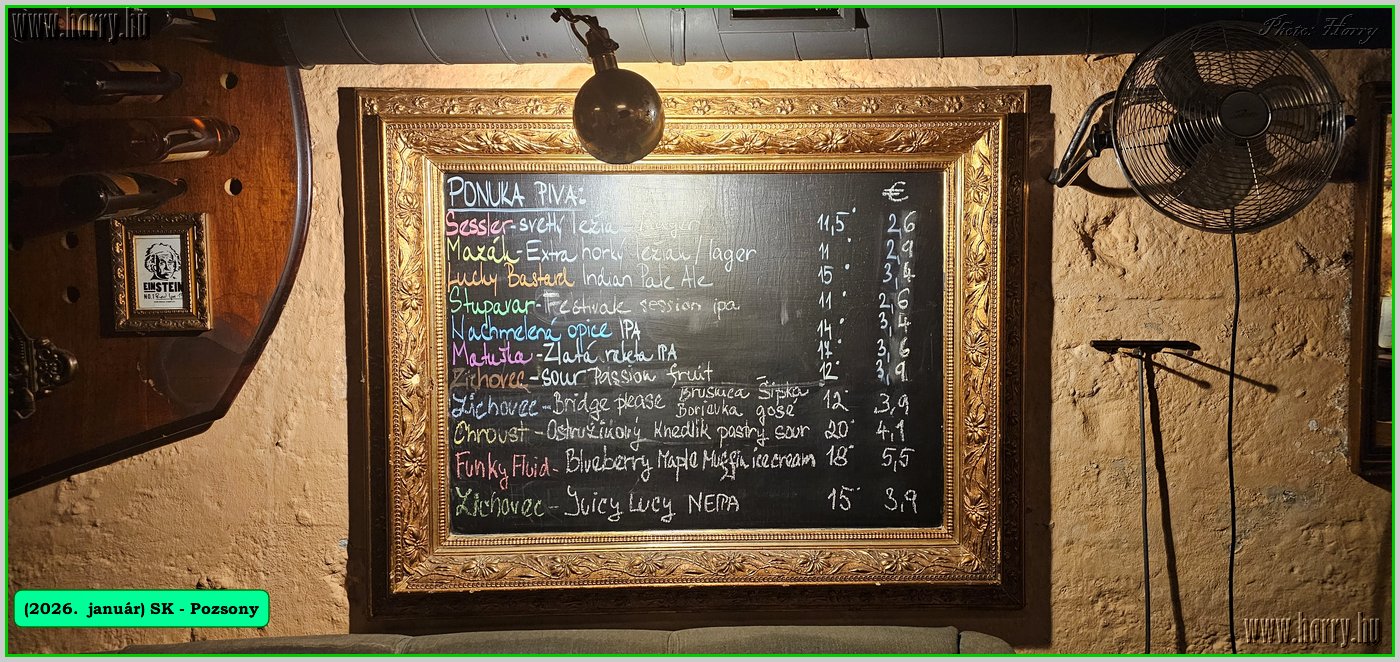 www.harry.hu
Photo: Harry
PONUKA PIVA: €
Sessler-svetlý ležiak 11,5° 2,6
Mazák-Extra horký ležiak/lager 11° 2,9
Lucky Bastard Indian Pale Ale 15° 3,4
Stupavar-Festivale session ipa 11° 2,6
Nachmelená opice IPA 14° 3,4
Matuška-Zlatá raketa IPA 17° 3,6
Zichovec-sour Passion fruit 12° 3,9
Zichovec-Bridge please Brusnica Šípka Borievka gose 12° 3,9
Chroust-Ostružinový knedlík pastry sour 20° 4,1
Funky Fluid-Blueberry Maple Muffin ice cream 18° 5,5
Zichovec-Juicy Lucy NEIPA 15° 3,9
EINSTEIN
NO.1
(2026. január) SK - Pozsony
www.harry.hu